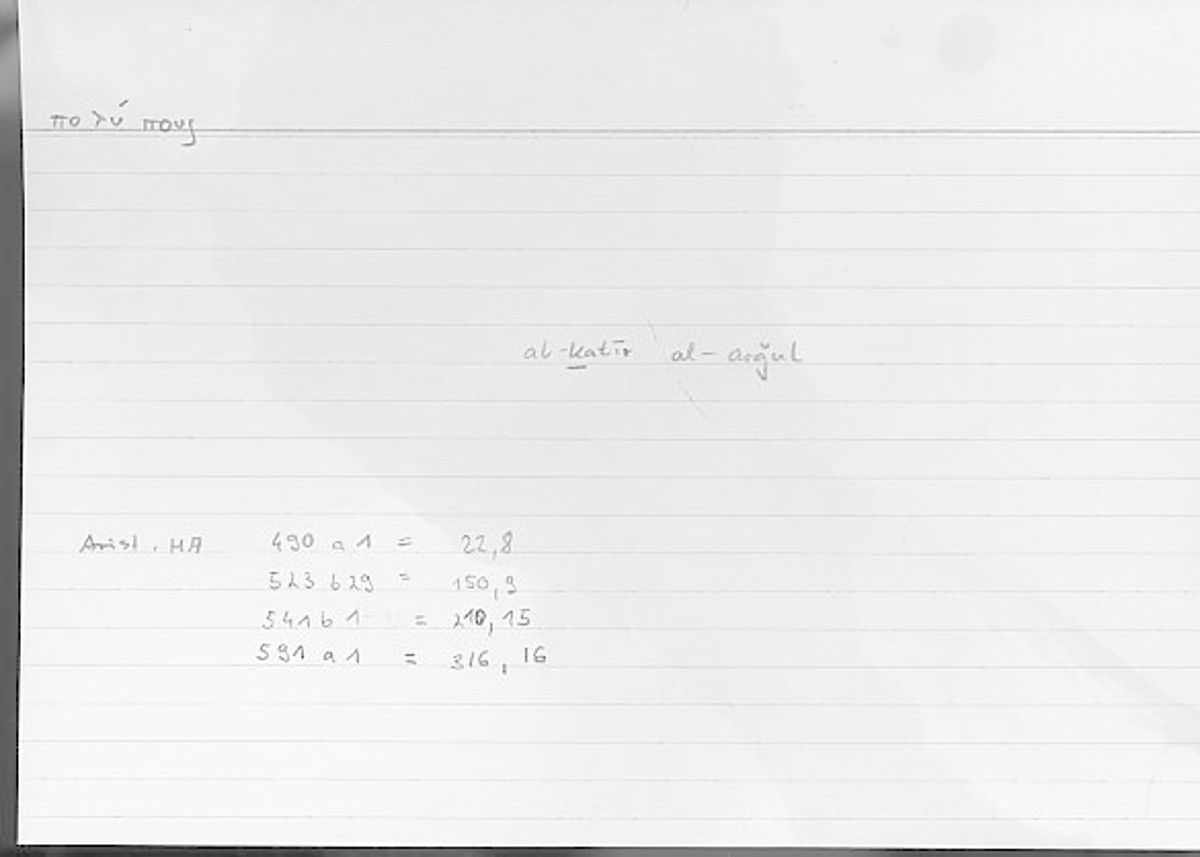 πολύπους
al-kaṯīr al-arǧul
Arist. HA 490 a 1 = 22,8
523 b 29 = 150,9
541 b 1 = 210,15
591 a 1 = 316,16